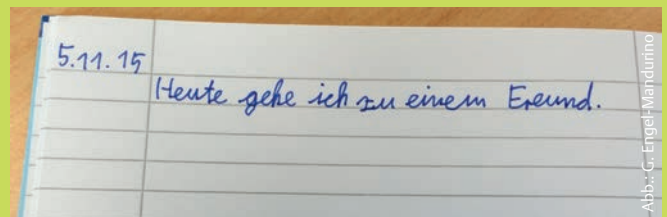 5.11.15
Heute gehe ich zu einem Freund.
Abb.: G. Engel-Mandurino